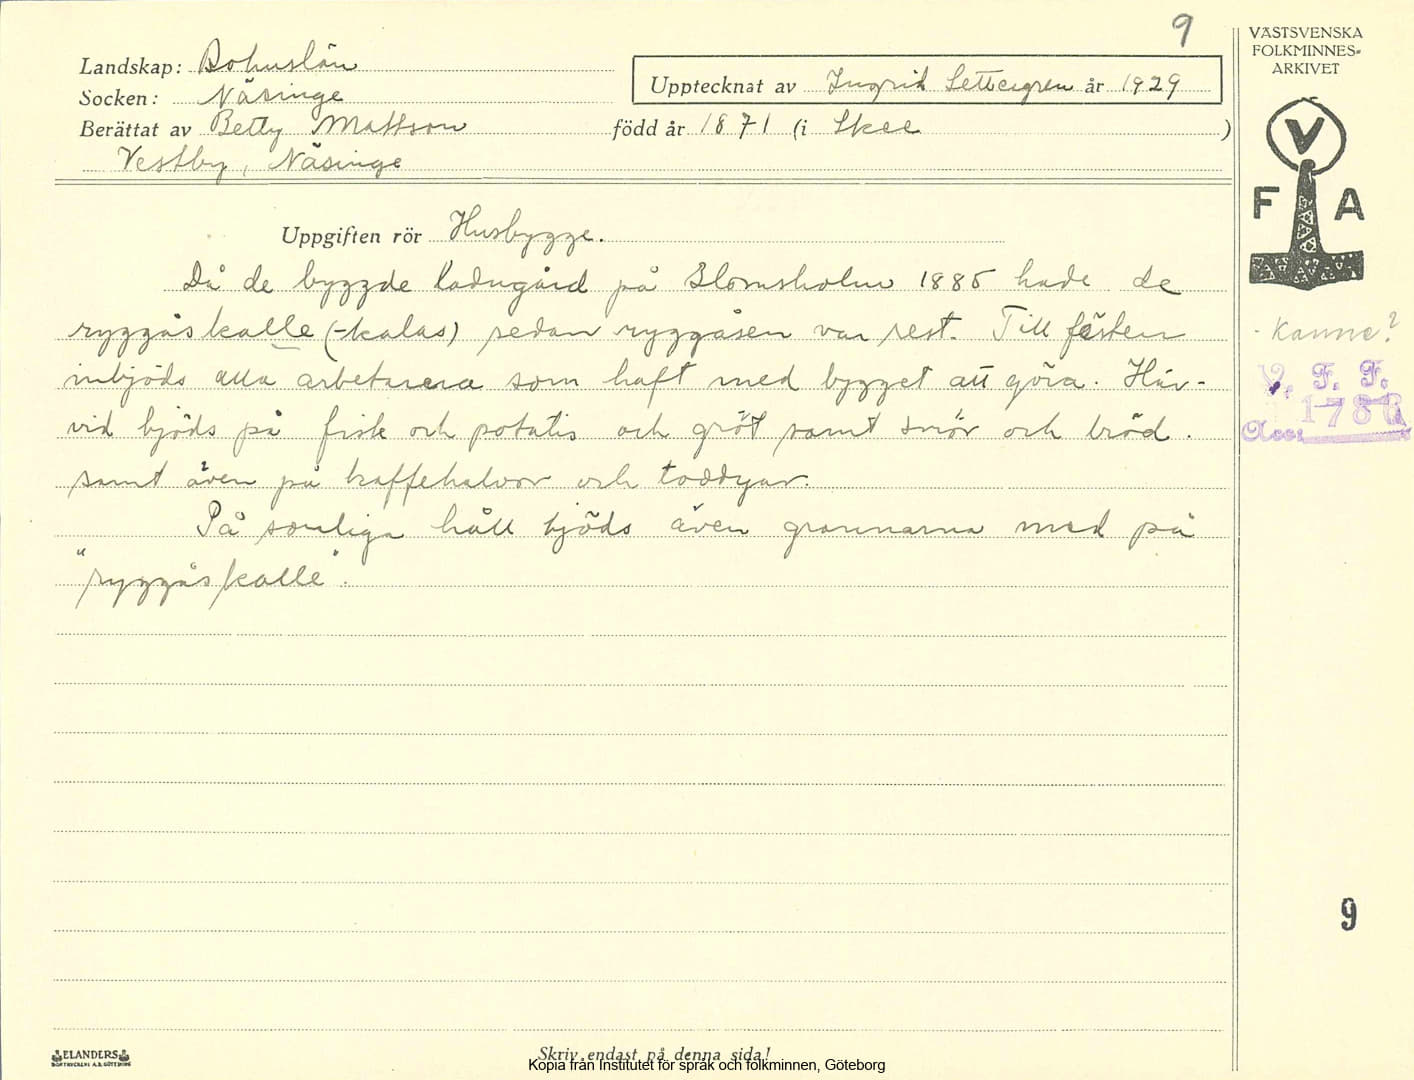 9
VÄSTSVENSKA
FOLKMINNES-
ARKIVET
Landskap: Bohuslän
Upptecknat av Ingrid Settergren år 1929
Socken: Näsinge
Berättat av Betty Mattson född år 1871 (i Skee)
Vestby, Näsinge
V
F A
Uppgiften rör Husbygge.
Då de byggde ladugård på Blomsholm 1885 hade de
ryggåskalle (-kalas) sedan ryggåsen var rest. Till festen
- Kanne?
inbjöds alla arbetarena som haft med bygget att göra. Här-
V. F. F.
vid bjöds på fisk och potatis och gröt samt smör och bröd.
Acc: 1786
samt även på kaffehalvor och toddyar.
På somliga håll bjöds även grannarna med på
"ryggåskalle".
9
ELANDERS
BOKTRYCKERI A.B. GÖTEBORG
Skriv endast på denna sida!
Kopia från Institutet för språk och folkminnen, Göteborg